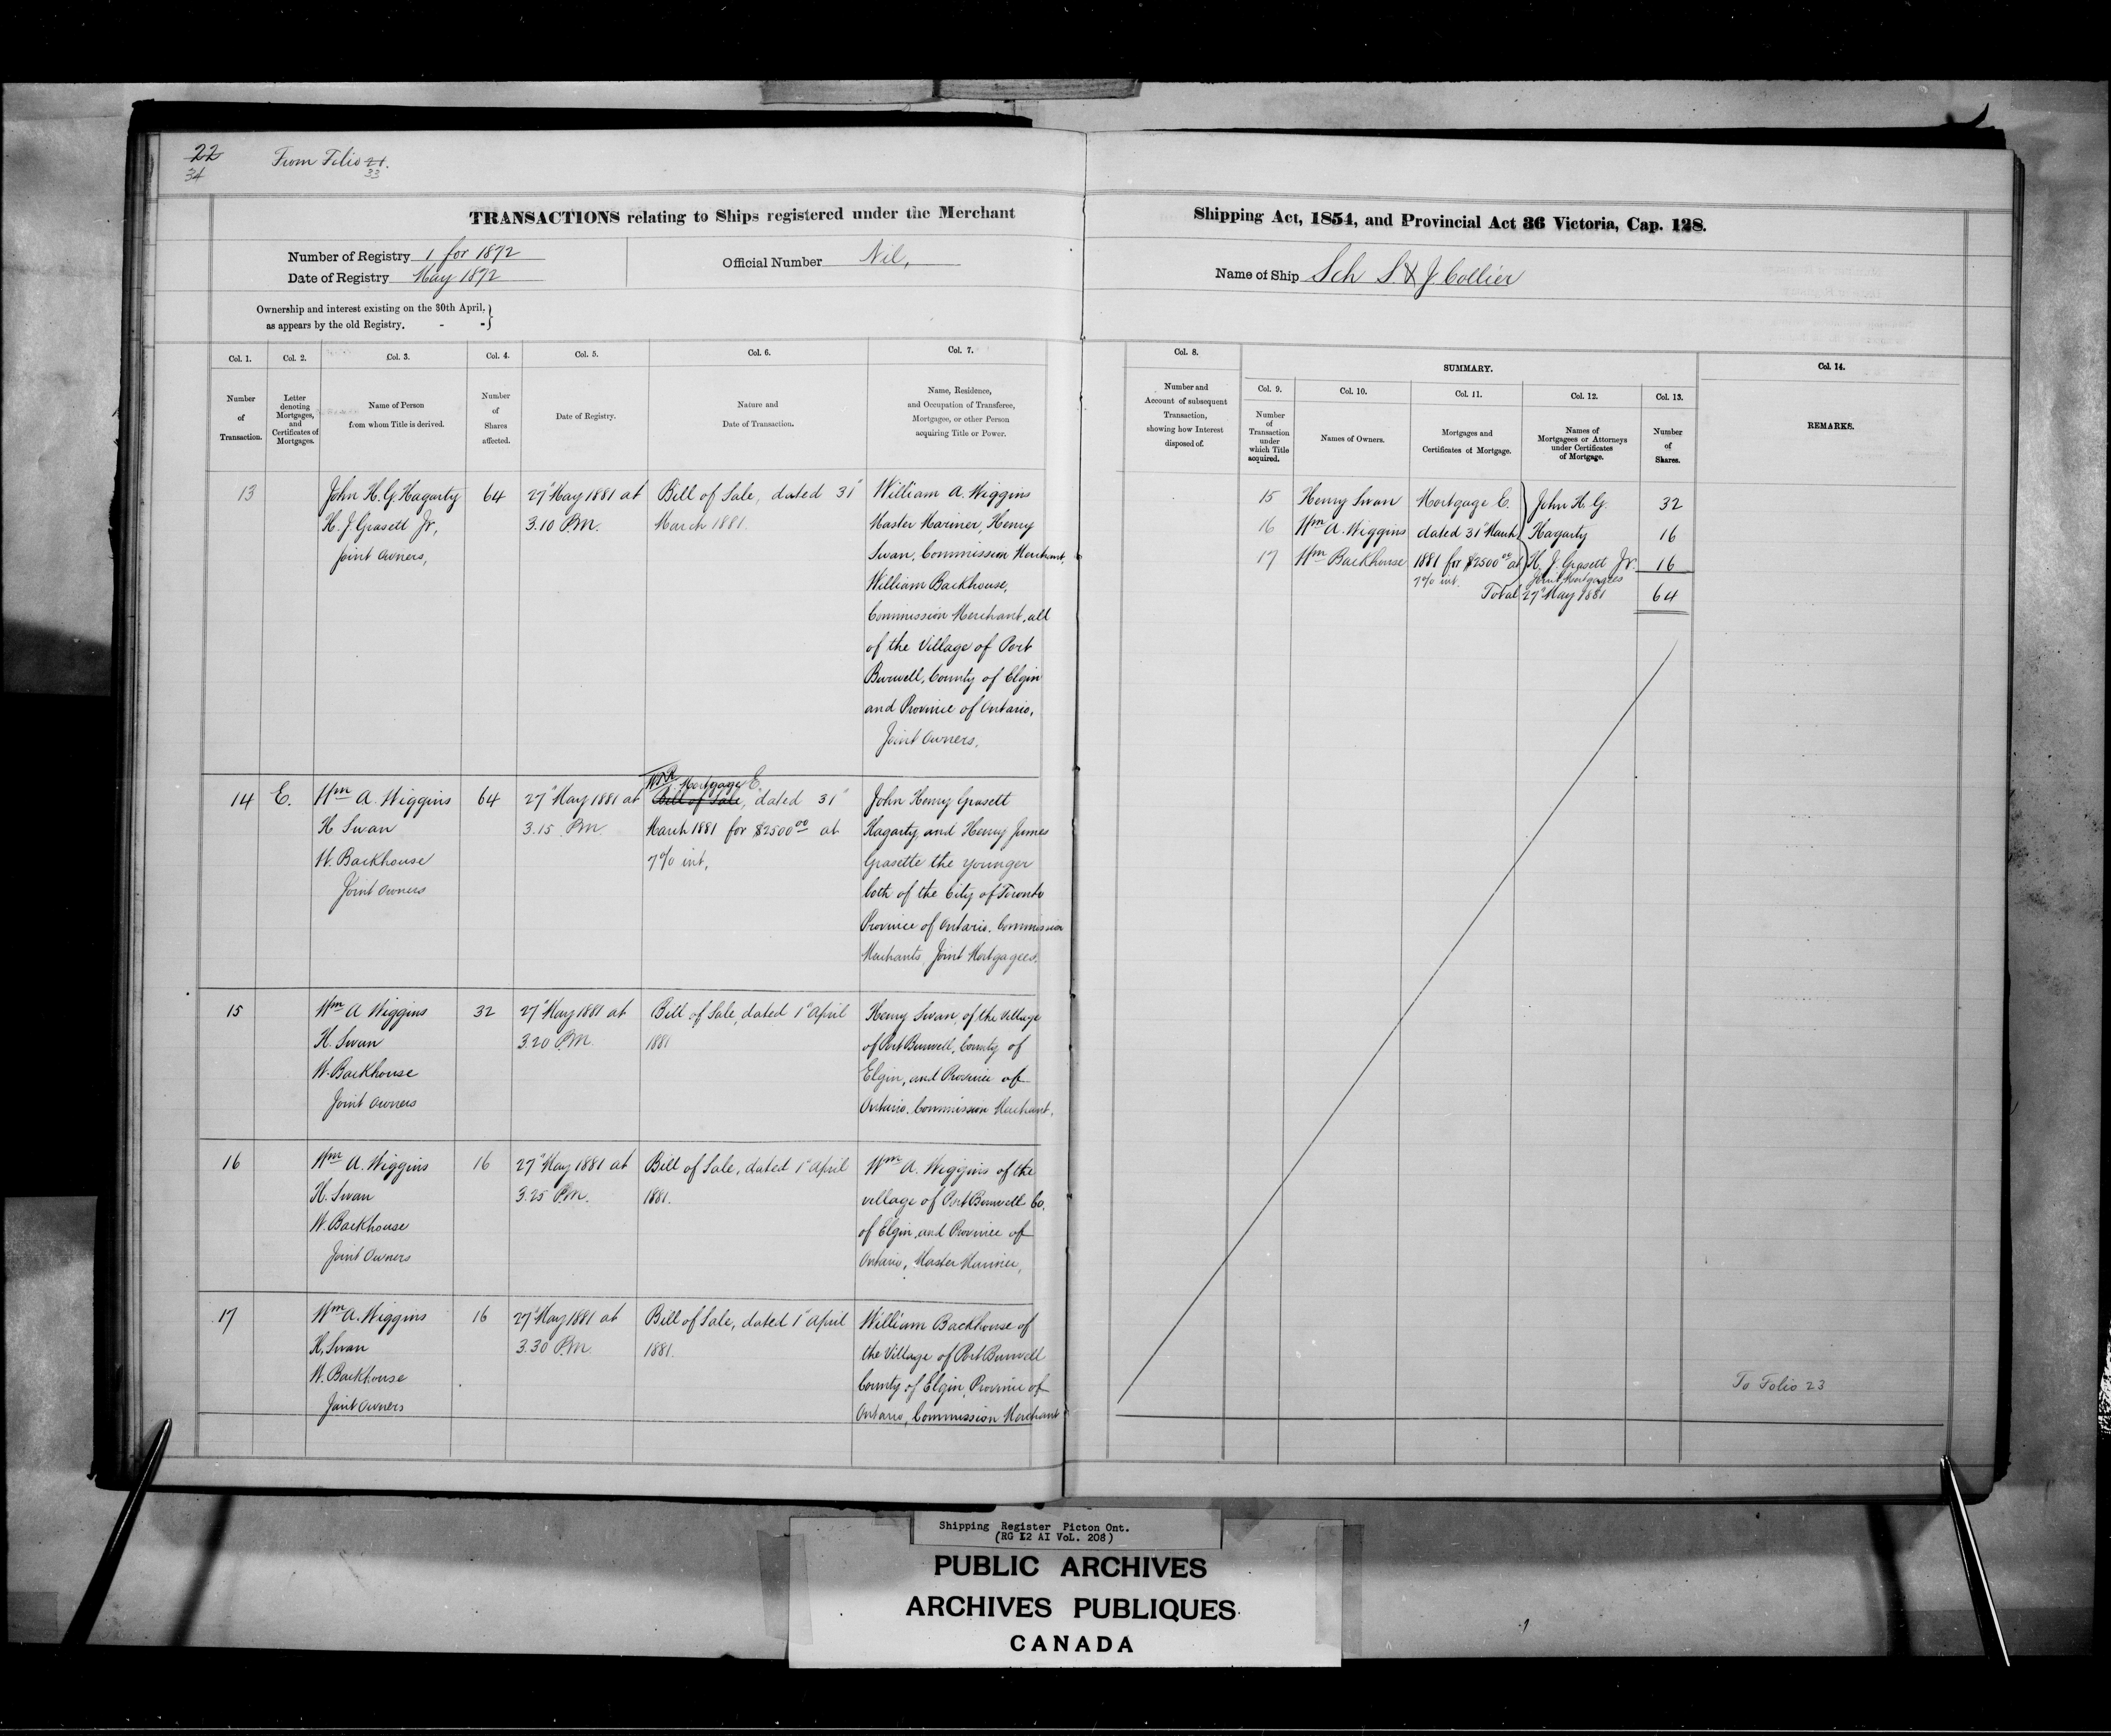 22
34
From Folio 21.
33
TRANSACTIONS relating to Ships registered under the Merchant
Number of Registry 1 for 1872
Date of Registry May 1872
Official Number Nil,
Ownership and interest existing on the 30th April,
as appears by the old Registry. - -
Col. 1.
Col. 2.
Col. 3.
Col. 4.
Col. 5.
Col. 6.
Col. 7.
Number
of
Transaction.
Letter
denoting
Mortgages,
and
Certificates of
Mortgages.
Name of Person
from whom Title is derived.
Number
of
Shares
affected.
Date of Registry.
Nature and
Date of Transaction.
Name, Residence,
and Occupation of Transferee,
Mortgagee, or other Person
acquiring Title or Power.
13
John H. G. Hagarty
H. J Grasett Jr,
joint Owners,
64
27" May 1881 at
3.10 P.M.
Bill of Sale, dated 31"
March 1881.
William A. Wiggins
Master Mariner, Henry
Swan, Commission Merchant,
William Backhouse,
Commission Merchant, all
of the Village of Port
Burwell, County of Elgin
and Province of Ontario,
Joint Owners.
14
E.
Wm A. Wiggins
H Swan
W. Backhouse
Joint Owners
64
27" May 1881 at
3.15 P.M
Mortgage E.
Bill of Sale, dated 31"
March 1881 for $2500 00 at
7% int,
John Henry Grasett
Hagarty and Henry James
Grasette the younger
both of the City of Toronto
Province of Ontario. Commission
Merchants, Joint Mortgagees.
15
Wm A Wiggins
H. Swan
W. Backhouse
Joint Owners
32
27" May 1881 at
3.20 P.M.
Bill of Sale, dated 1" April
1881
Henry Swan, of the Village
of Port Burwell, County of
Elgin, and Province of
Ontario. Commission Merchant.
16
Wm A. Wiggins
H. Swan
W. Backhouse
Joint Owners
16
27" May 1881 at
3.25 P.M.
Bill of Sale, dated 1" April
1881.
Wm A. Wiggins of the
village of Port Burwell Co.
of Elgin, and Province of
Ontario, Master Mariner,
17
Wm A. Wiggins
H. Swan
W. Backhouse
Joint Owners
16
27" May 1881 at
3.30 P.M.
Bill of Sale, dated 1" April
1881.
William Backhouse of
the Village of Port Burwell
County of Elgin, Province of
Ontario, Commission Merchant
Shipping Act, 1854, and Provincial Act 36 Victoria, Cap. 128.
Name of Ship Sch S. & J. Collier
Col. 8.
Number and
Account of subsequent
Transaction,
showing how Interest
disposed of.
SUMMARY.
Col. 9.
Col. 10.
Col. 11.
Col. 12.
Col. 13.
Col. 14.
Number
of
Transaction
under
which Title
acquired.
Names of Owners.
Mortgages and
Certificates of Mortgage.
Names of
Mortgagees or Attorneys
under Certificates
of Mortgage.
Number
of
Shares.
REMARKS.
15 Henry Swan Mortgage E. John H. G. 32
16 Wm A. Wiggins dated 31" March Hagarty 16
17 Wm Backhouse 1881 for $2500 00 at H. J. Grasett Jr. 16
7% int. Joint Mortgagees
Total 27" May 1881 64
To Folio 23
Shipping Register Picton Ont.
(RG 12 AI VoL. 208)
PUBLIC ARCHIVES
ARCHIVES PUBLIQUES
CANADA